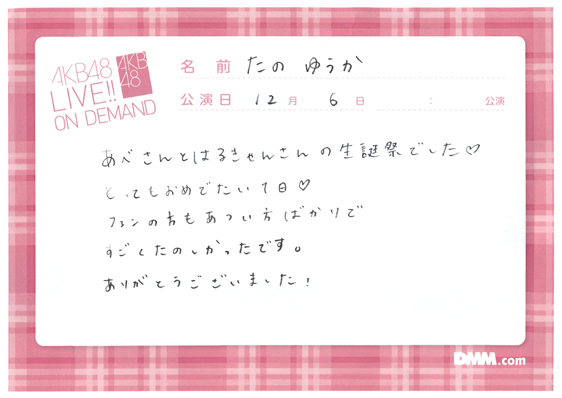 AKB48
LIVE!!
ON DEMAND
AKB
48
名前 たの ゆうか
公演日 12月 6日 : 公演
あべさんとはるきゃんさんの生誕祭でした♡
とってもおめでたい1日♡
ファンの方もあつい方ばかりで
すごくたのしかったです。
ありがとうございました!
DMM.com